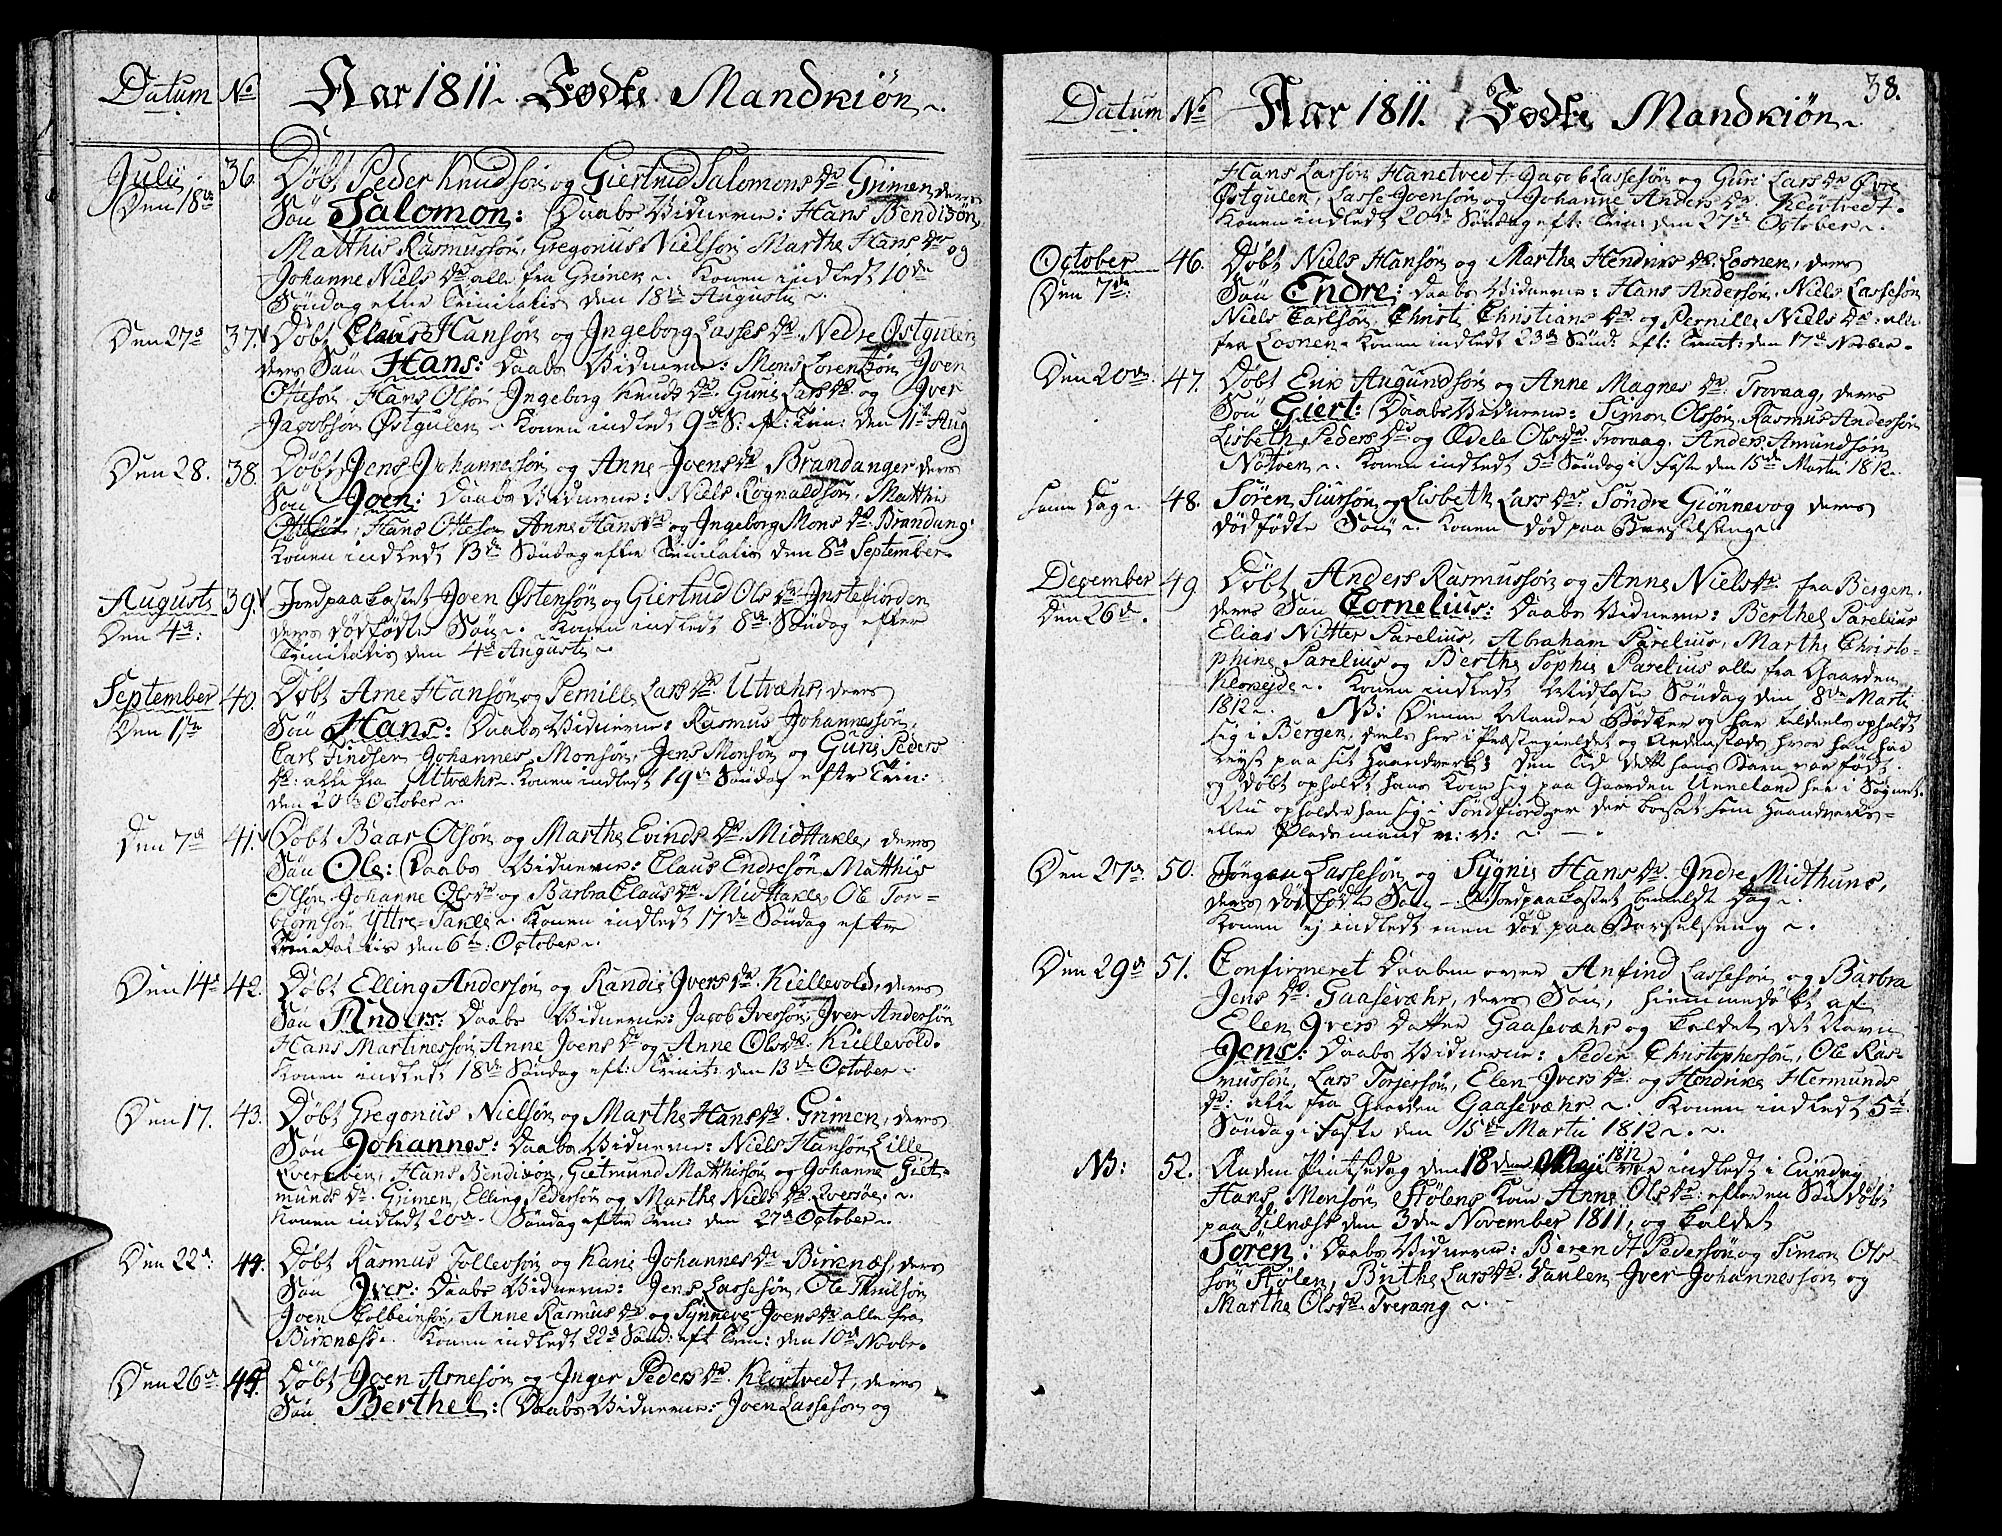 Datum No Aar 1811. Fødte Mandkiøn.
Julij 36. Døbt Peder Knudsøn og Giertrud Salomons dr Grimen, deres
Den 18de Søn Salomon: Daabs Vidnerne: Hans Bendixøn,
Matthis Rasmussøn, Gregorius Nielsøn Marthe Hans dr og
Johanne Niels dr alle fra Grimen. Konen indledt 10de
Søndag efter Trinitatis den 18de Augusti.
Den 27de 37. Døbt Claus Hansøn og Ingeborg Lasses dr Nedre Østgulen
deres Søn Hans: Daabs Vidnerne: Mons Lorentsøn Joen
Ottesøn Hans Olsøn Ingeborg Knuds dr. Guri Lars dr. og Iver
Jacobsøn Østgulen. Konen indledt 9de S: eft: Trin: den 11te Aug
Den 28. 38. Døbt Jens Johannessøn og Anne Joens dr Brandanger deres
Søn Joen: Daabs Vidnerne: Niels Rognaldsøn, Matthis
Ottesøn, Hans Ottesøn Anne Hans dr og Ingeborg Mons dr Brandang:
Konen indledt 13de Søndag efter Trinitatis den 8de September.
Augusti 39. Jordpaakastet Joen Østensøn og Giertrud Ols dr Instefiorden
Den 4de: deres dødfødte Søn. Konen indledt 8de Søndag efter
Trinitatis den 4de Augusti.
September 40. Døbt Arne Hansøn og Pernille Lars dr. Utvæhr, deres
Den 1ste Søn Hans: Daabs Vidnerne: Rasmus Johannessøn,
Carl Findsen Johannes Monsøn, Jens Monsøn og Guri Peders
dr: alle fra Utvæhr. Konen indledt 19de Søndag efter Trin:
den 20de October.
Den 7de 41. Døbt Baar Olsøn og Marthe Evinds dr. Midtakle, deres
Søn Ole: Daabs Vidnerne: Claus Endresøn Matthis
Olsøn Johanne Ols dr og Barbra Claus dr. Midtakle, Ole Tor=
biørnsøn Yttre=Takle. Konen indledt 17de Søndag efter
Trinitatis den 6te: October.
Den 14de 42. Døbt Elling Andersøn og Randi Ivers dr. Kiellevold, deres
Søn Anders: Daabs Vidnerne: Jacob Iversøn, Iver Andersøn
Hans Martinessøn Anne Joens dr og Anne Ols dr. Kiellevold.
Konen indledt 18de Søndag eft: Trinit: den 13de October.
Den 17. 43. Døbt Gregorius Nielsøn og Marthe Hans dr. Grimen, deres
Søn Johannes: Daabs Vidnerne: Niels Hansøn Lille
Qversøen, Hans Bendixøn, Gietmund Matthissøn og Johanne Giet=
munds dr. Grimen, Elling Pedersøn og Marthe Niels dr. Qversøe.
Konen indledt 20de Søndag efter Trin: den 27de October.
Den 22de: 44. Døbt Rasmus Tollevsøn og Kari Johannes dr Birknæs, deres
Søn Iver: Daabs Vidnerne: Jens Lassesøn, Ole Truilsøn
Joen Colbeinsøn, Anne Rasmus dr og Synneve Joens dr alle fra
Birknæs. Konen indledt 22de Sønd: eft Trin: den 10de Novbr.
Den 26de 45. Døbt Joen Arnesøn og Inger Peders dr. Klovtvedt, deres
Søn Berthel: Daabs Vidnerne: Joen Lassesøn og
38.
Datum No Aar 1811. Fødte Mandkiøn.
Hans Larsøn Hanetvedt Jacob Lassesøn og Guri Lars dr Øvre
Østgulen, Lasse Joensøn og Johanne Anders dr. Klovtvedt.
Konen indledt 20de Søndag eft: Trin: den 27de October.
October 46. Døbt Niels Hansøn og Marthe Hendrics dr: Losnen, deres
Den 7de: Søn Endre: Daabs Vidnerne: Hans Andersøn, Niels Lassesøn
Niels Carlsøn, Christi Christians dr. og Pernille Niels dr: alle
fra Losnen. Konen indledt 23de Sønd: eft: Trinit: den 17de Novber.
Den 20de. 47. Døbt Erik Augundsøn og Anne Magnes dr. Trovaag, deres
Søn Giert: Daabs Vidnerne: Simon Olsøn, Rasmus Andersøn
Lisbeth Peders dr og Ødele Ols dr. Trovaag. Anders Amundsøn
Nøtøen. Konen indledt 5te Søndag i Faste den 15de Martii 1812.
Samme Dag. 48. Søren Siursøn og Lisbeth Lars dr: Søndre Giønnevog deres
dødfødte Søn. Konen død paa Barselseng.
December 49. Døbt Anders Rasmussøn og Anne Niels dr. fra Bergen,
Den 26de. deres Søn Cornelius: Daabs Vidnerne: Berthel Parelius
Elias Nitter Parelius, Abraham Parelius, Marthe Christo=
phine Parelius og Berthe Sophie Parelius alle fra Gaarden
Kloxejde. Konen indledt Midfaste Søndag den 8de Marti
1812. NB: Denne Mand er Bødker og har tildeels opholdt
sig i Bergen, deels her i Præstegieldet og Andenstæds hvor han har
reyst paa sit Haandverk; den Tid dette hans Barn var født
og døbt opholdt hans Kone sig paa Gaarden Unneland her i Sognet.
Nu opholder han sig i Søndfiord, er der bosat som Haandverks=
eller Pladsmand
Den 27de. 50. Jørgen Lassesøn og Sygni Hans dr. Indre Midthuns,
deres dødfødte Søn - Jordpaakastet bemeldte Dag.
Konen ej indledt men død paa Barselseng.
Den 29de 51. Confirmeret Daaben over Anfind Lassesøn og Barbra
Jens dr. Gaasevæhr, deres Søn, hiemmedøbt af
Elen Ivers Datter Gaasevæhr og kaldet det Navn
Jens: Daabs Vidnerne: Peder Christophersøn, Ole Ras=
mussøn, Lars Torjersøn, Elen Ivers dr: og Hendrike Hermunds
dr: alle fra Gaarden Gaasevæhr. Konen indledt 5te
Søndag i Faste den 15de Martii 1812.
NB: 52. Anden Pintsedag den 18de Maji 1812 var indledt i Evindvig
Hans Monsøn Stølens Kone Anne Ols dr: efter en Søn døbt
paa Vilnæs den 3de November 1811, og kaldet
Søren: Daabs Vidnerne: Berendt Pedersøn og Simon Ols=
søn Stølen, Brithe Lars dr. Daulen, Iver Johannessøn og
Marthe Ols dr. Tverang.